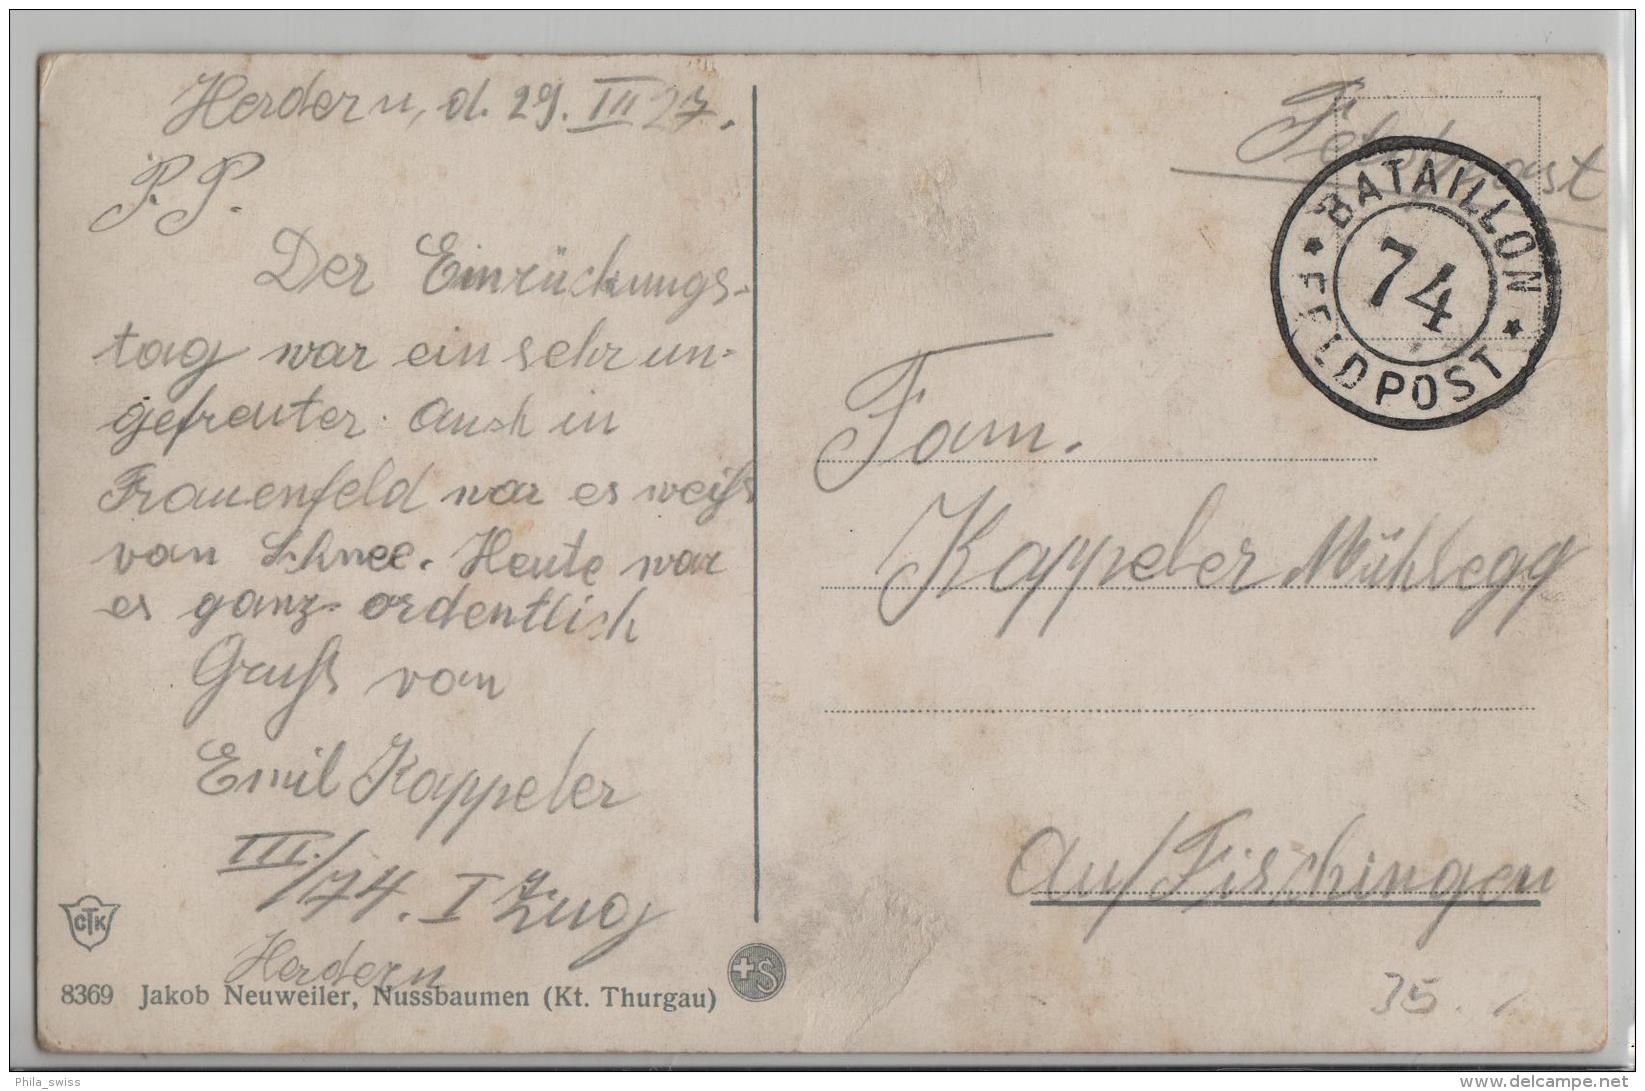 Herdern, d. 29. III 27.
P.P.
Der Einrückungs-
tag war ein sehr un-
gefreuter. Auch in
Frauenfeld war es weiß
von Schnee. Heute war
es ganz ordentlich
Gruß von
Emil Kappeler
III./74. I Zug
Herdern
CTK
8369 Jakob Neuweiler, Nussbaumen (Kt. Thurgau)
S
Feldpost
BATAILLON
74
FELDPOST
Fam.
Kappeler Mühlegg
Au/Fischingen
35.
Phila_swiss
delcampe.net